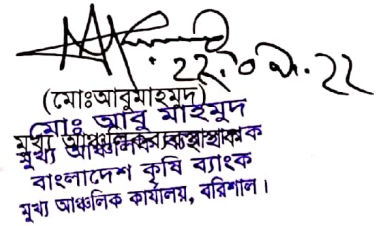 ২২.০৬.২২
(মোঃআবুমাহমুদ)
মোঃ আবু মাহমুদ
মুখ্য আঞ্চলিক ব্যবস্থাপক
মুখ্য আঞ্চলিক ব্যবস্থাপক
বাংলাদেশ কৃষি ব্যাংক
মুখ্য আঞ্চলিক কার্যালয়, বরিশাল।